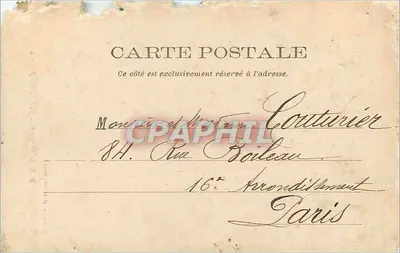 CARTE POSTALE
Ce côté est exclusivement réservé à l'adresse.
Monsieur et Madame Couturier
CPAPHIL
84. Rue Boileau
16e Arrondissement
Paris